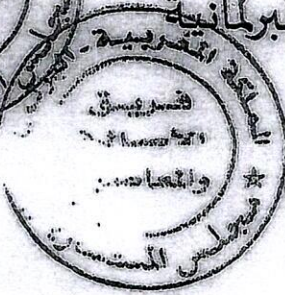 البرلمانية
المملكة المغربية - البرلمان
فريق
الأصالة
والمعاصرة
مجلس المستشارين